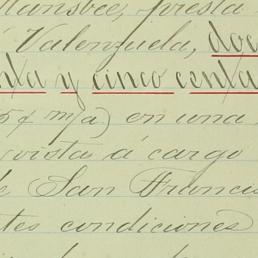 Mansbee, presta
Valenzuela, doc
nta y cinco centa
5¢ m/a) en una
ovista á cargo
e San Francis
tes condiciones